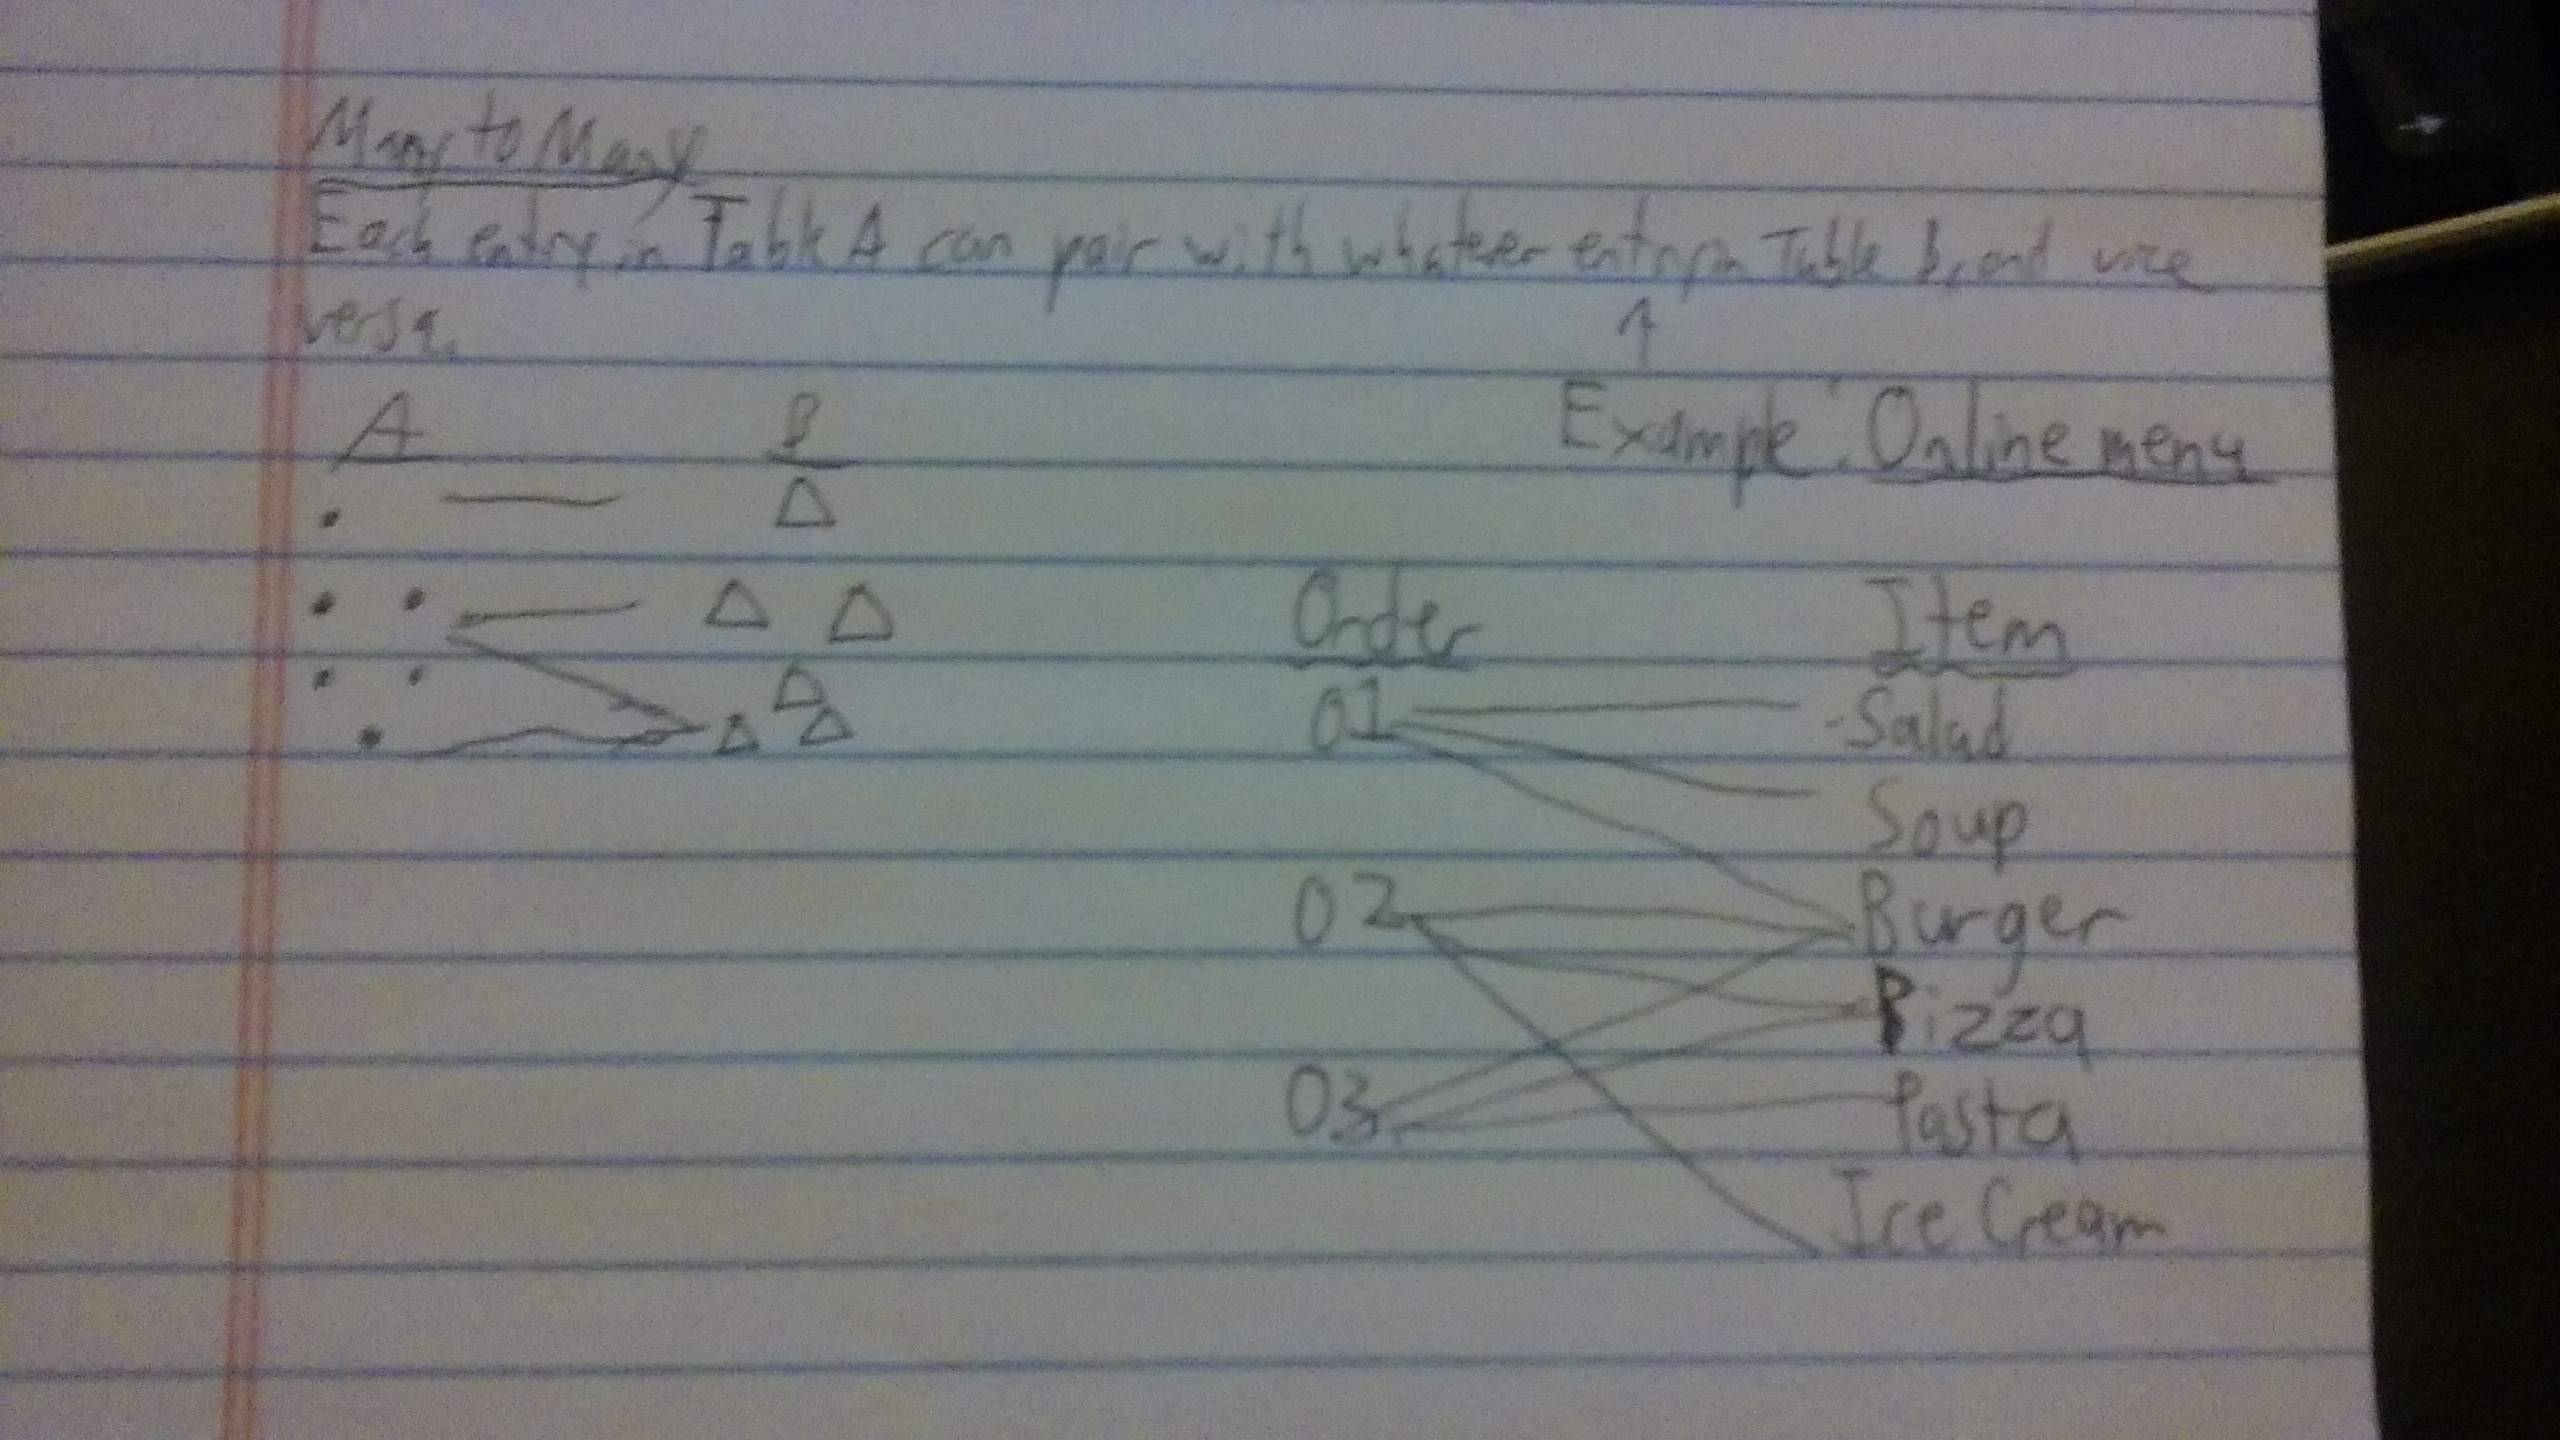 Many to Many
Each entry in Table A can pair with whatever entry in Table B, and vice
versa.
A B
Example: Online menu
Order Item
O1 Salad
Soup
O2 Burger
Pizza
O3 Pasta
Ice Cream